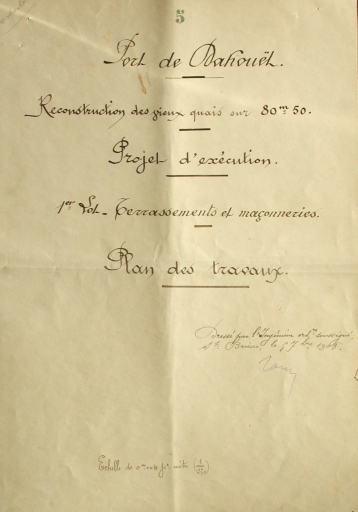 5
Port de Dahouët.
Reconstruction des vieux quais sur 80m 50.
Projet d'exécution.
1er Lot - Terrassements et maçonneries.
Plan des travaux.
Dressé par l'Ingénieur soussigné
St Brieuc, le
Echelle de